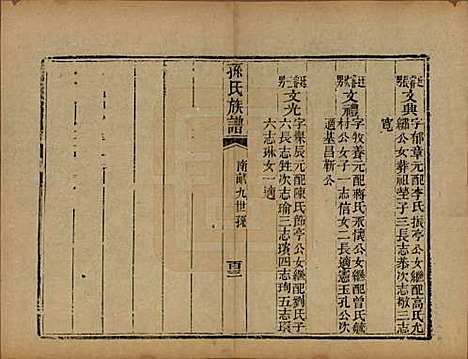 文典
字郁章元配李氏振亭公女繼配高氏允
繡公女葬祖塋子三長志泰次志敏三志
寬
文禮
字牧養元配蔣氏永儀公女繼配曾氏毓
村公女子一志信女二長適憲玉孔公次
適基昌靳公
文光
字集辰元配陳氏節亭公女繼配劉氏子
六長志鉎次志瑜三志璸四志珣五志瑔
六志琳女一適
孫氏族譜
南
九世孫